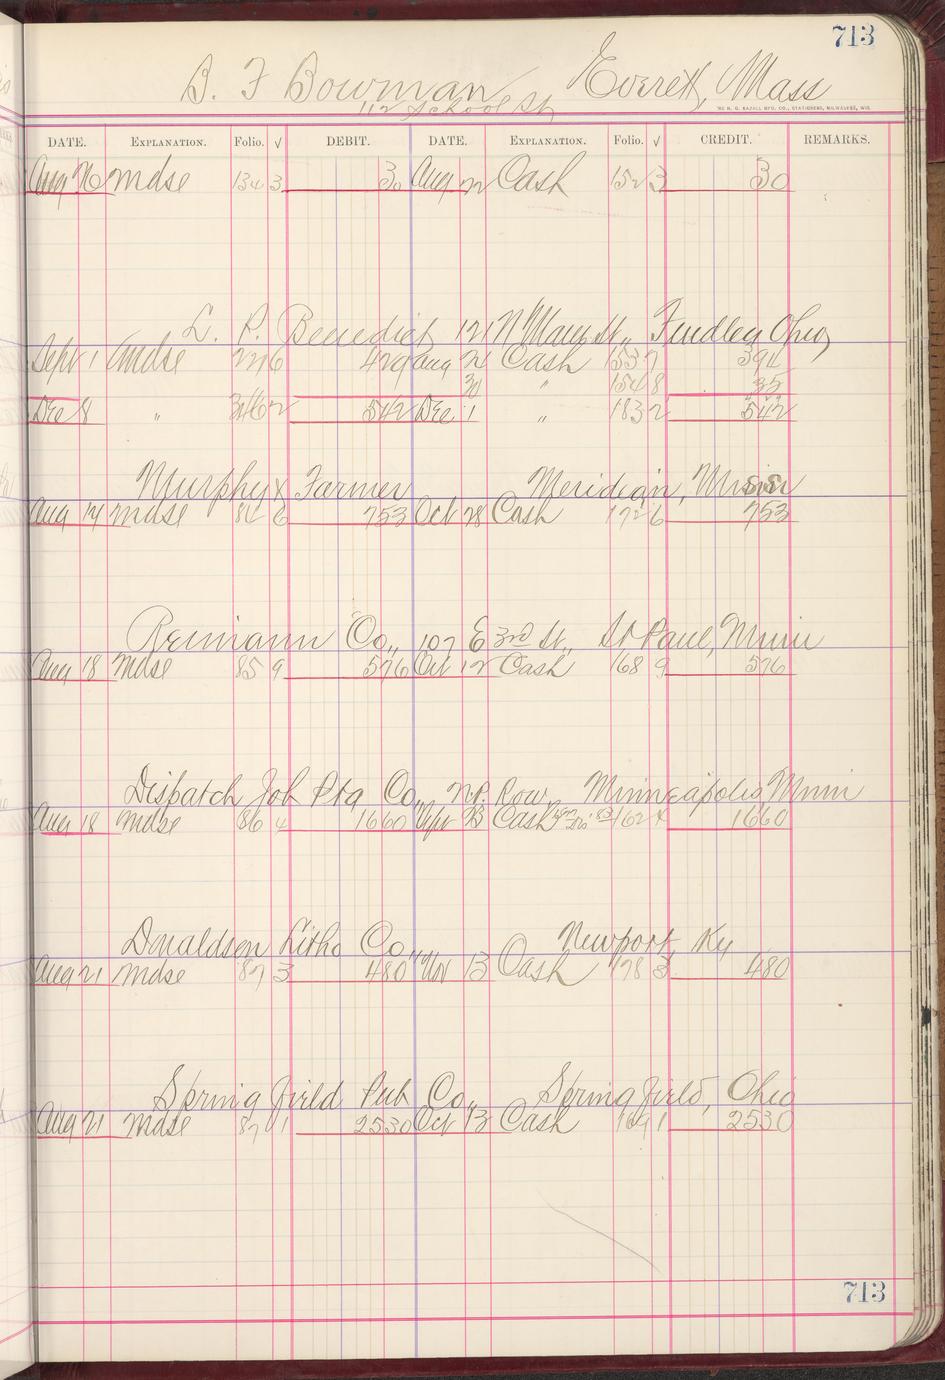 713
B. F. Bowman Everett, Mass
112 School St
THE H. G. RAZALL MFG. CO., STATIONERS, MILWAUKEE, WIS.
DATE. EXPLANATION. Folio. √ DEBIT. DATE. EXPLANATION. Folio. √ CREDIT. REMARKS.
Aug 26 mdse 134 3 30 Aug 22 Cash 152 3 30
L. P. Benedict 121 N Main St., Findley Ohio
Sept 1 mdse 227 6 429 Aug 21 Cash 153 7 394
30 " 154 8 35
Dec 8 " 346 2 542 Dec 1 " 183 2 542
Murphy & Farmer Meridian, Miss
Aug 17 mdse 84 6 753 Oct 28 Cash 172 6 753
Reimann Co., 107 E 3rd St., St Paul, Minn
Aug 18 mdse 85 9 576 Oct 12 Cash 168 9 576
Dispatch Job Ptg Co., N.P. Row Minneapolis Minn
Aug 18 mdse 86 4 1660 Sept 23 Cash 162 4 1660
Donaldson Litho Co., Newport, Ky
Aug 21 mdse 87 3 480 Nov 13 Cash 178 3 480
Springfield Pub Co., Springfield, Ohio
Aug 21 mdse 87 1 2530 Oct 13 Cash 169 1 2530
713